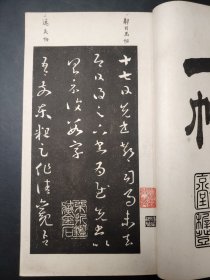 郗司馬帖
十七日先書郗司馬未去
即日得足下書為慰先書以
具示復數字
逸民帖
吾前東粗足作佳觀吾